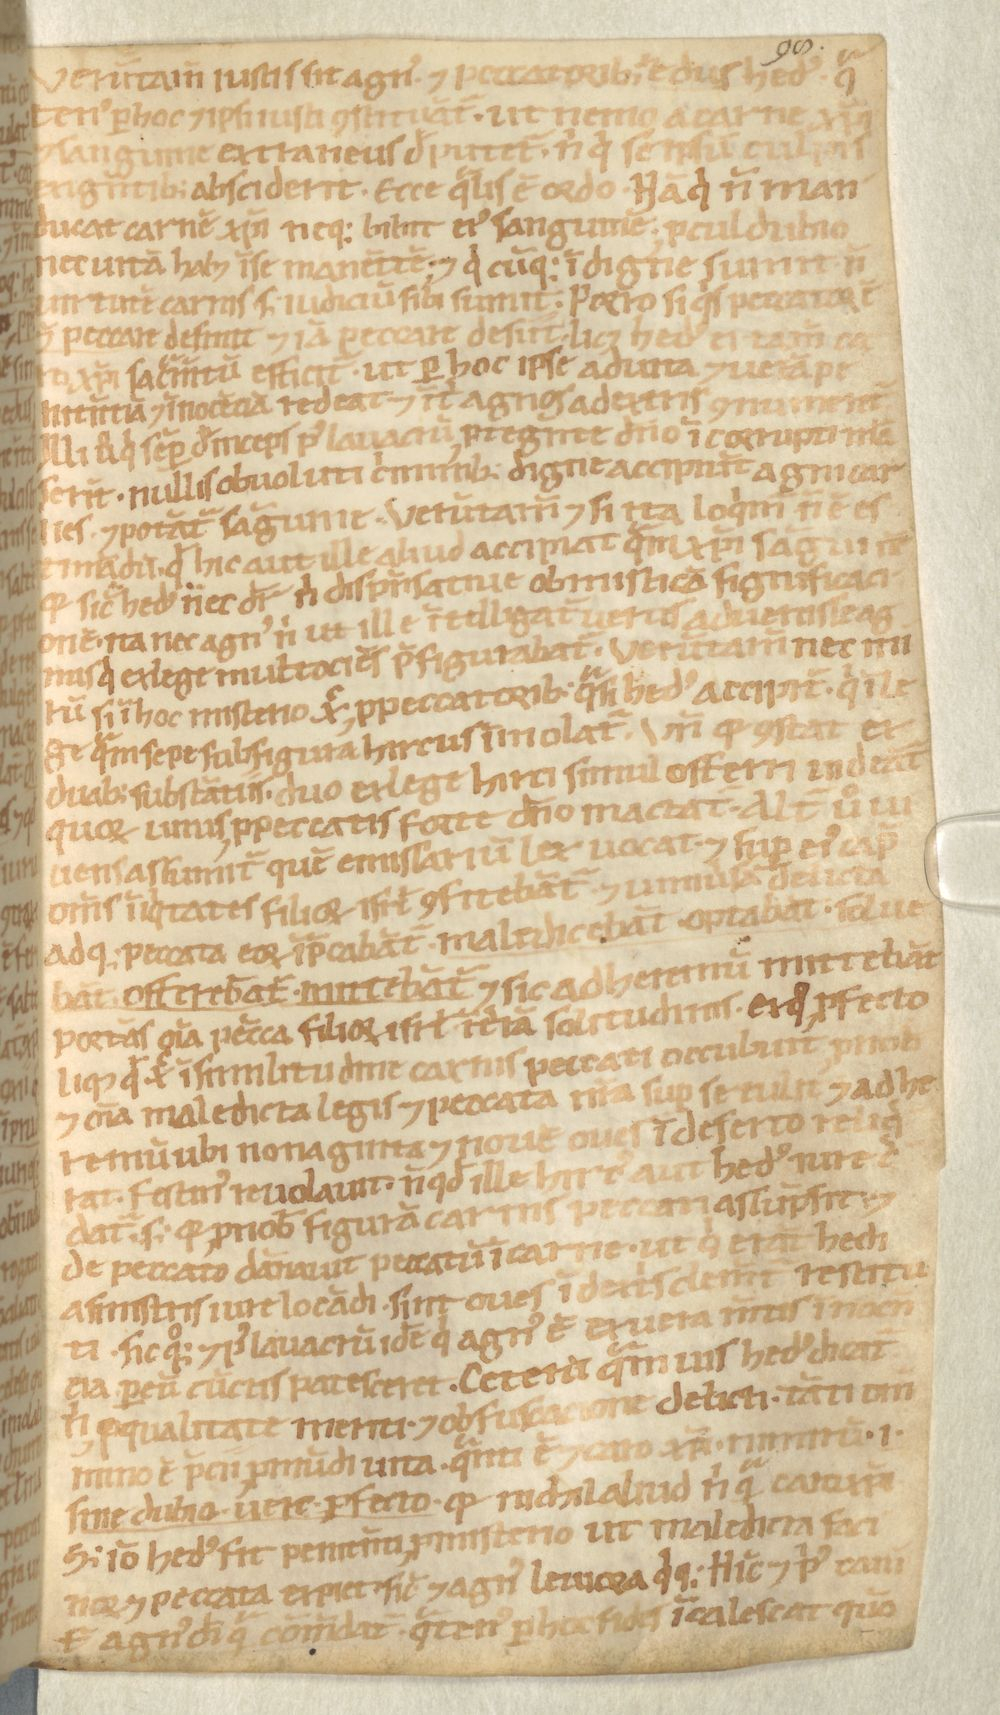 98.
Verūtam̄ iustis sit agn᷒ ⁊ peccatorib; edus hed᷒ q̄
ten᷒ ꝑ hoc ⁊ ipsi iusti ꝯstituāt᷑ · ut nemo a carne xp̄i
⁊ sanguine extraneus d̄putet᷑ · n̄ q̇ se ipsū culpis
exign̄tib; absciderit · Ecce q̄lis ē ordo · Nā q̇ n̄ man
ducat carnē xp̄i neq; bibit ei᷒ sanguinē · ꝓcul dubio
nec uitā habꝫ ī se manentē · ⁊ q̇ cūq; īdigne sumit n̄
uirtutē carnis s; iudiciū sibi sumit · Porro si q̇s peccator ē
⁊ peccare desinit ⁊ iā peccare desinit licꝫ hed᷒ ei tam̄ ca
ro xp̄i sacm̄tū efficit᷑ · ut ꝑ hoc ipse ad uitā ⁊ uerā pe
nitentiā ⁊ īnocētiā redeat · ⁊ īt᷑ agnos a dextris ꝯnumeret᷑
Illi ū q̇ sēp d̄inceps p᷒ lauacrū, ꝓtegente dn̄o īcorrupti mā
serūt · nullis obuoluti c̄minib; digne accipiūt agni car
nes · ⁊ potāt᷑ sāguine · Verūtam̄ ⁊ si ita loq̇m᷑ n̄ ē es
timādū · q̇ hic aut ille aliud accipiat q̄m xp̄i sāguinē
Qr sic̄ hed᷒ n̄ ec dr̄ n̄ dispn̄satiue ob misticā significaci
onē · ita nec agn᷒ n̄ ut ille ītelligat᷑ uerus aduenisse ag
nus q̇ ex lege multociēs p̄figurabat᷑ · Verūtam̄ nec mi
rū si ī hoc misterio xp̄c, ꝓ peccatorib; q̄si hed᷒ accipit᷑ · q̇ ī le
ge q̄m sepe sub figura hircus īmolat᷑ · Vn̄ qr ꝯstat ex
duab; substātiis · duo ex lege hirci simul offerri iudeāt᷑
quor unus, ꝓ peccatis forte dn̄o mactat᷑ · Alt᷑ ů ui
uens assumit᷑ quē emissariū lex uocat · ⁊ sup ei᷒ cap᷒
om̄s īiq̇tates filior isrl̄ ꝯfitebāt᷑ · ⁊ uniuersa delicta
adq; peccata eor īp̄cabāt᷑ · maledicebāt · optabāt · solue
bāt · offerebāt᷑ · mittebāt᷑ ⁊ sic ad heremū mittebāt
portās oīa pecca filior isrl̄ ī t̄rā solitudinis · ex q̊, ꝓfecto
liqꝫ qd̄ xp̄c ī similitudine carnis peccati occubuit, ꝓ nob
⁊ oīa maledicta legis ⁊ peccata nr̄a sup se tulit, ⁊ ad he
remū ubi nonaginta ⁊ nouē oues ī deserto reliq̇
rat · festin᷒ reuolauit · n̄ qd ille hirc᷒ aut hed᷒ iure c̄
dat᷑ · s; qr, ꝓ nob figurā carnis peccati assūpsit · ⁊
de peccato dānauit peccatū ī carne · ut q̇ erāt hedi
a sinistris iure locādi · sint oues ī dextris clem̄t᷑ restitu
ti · sic q̊; ⁊ p᷒ lauacrū idē q̇ agn᷒ ē ex uera m̄tis īnocen̄
cia · ꝑ eū cūctis patesceret · Ceterū q̄muis hed᷒ dicat᷑
n̄, ꝓ qualitate meriti · ⁊ obfuscacione delicti · tāti om̄
nino ē p̄cii, ꝓ mūdi uita · q̄nti ē ⁊ caro xp̄i · nimirū · i ·
sine dubio · uere · ꝓfecto · qr nichil aliud n̄ q̄ caro xp̄i
S; iō hed᷒ fit penitēti, ꝓ misterio ut maledicta faci
nor ⁊ peccata expiet sic̄ ⁊ agn᷒ leuiora q̇q; Hic ⁊ p᷒ tam̄
ē agn᷒ di q̄ com̄dat · q̄ten᷒ ꝑ hoc fides īcalescat quo